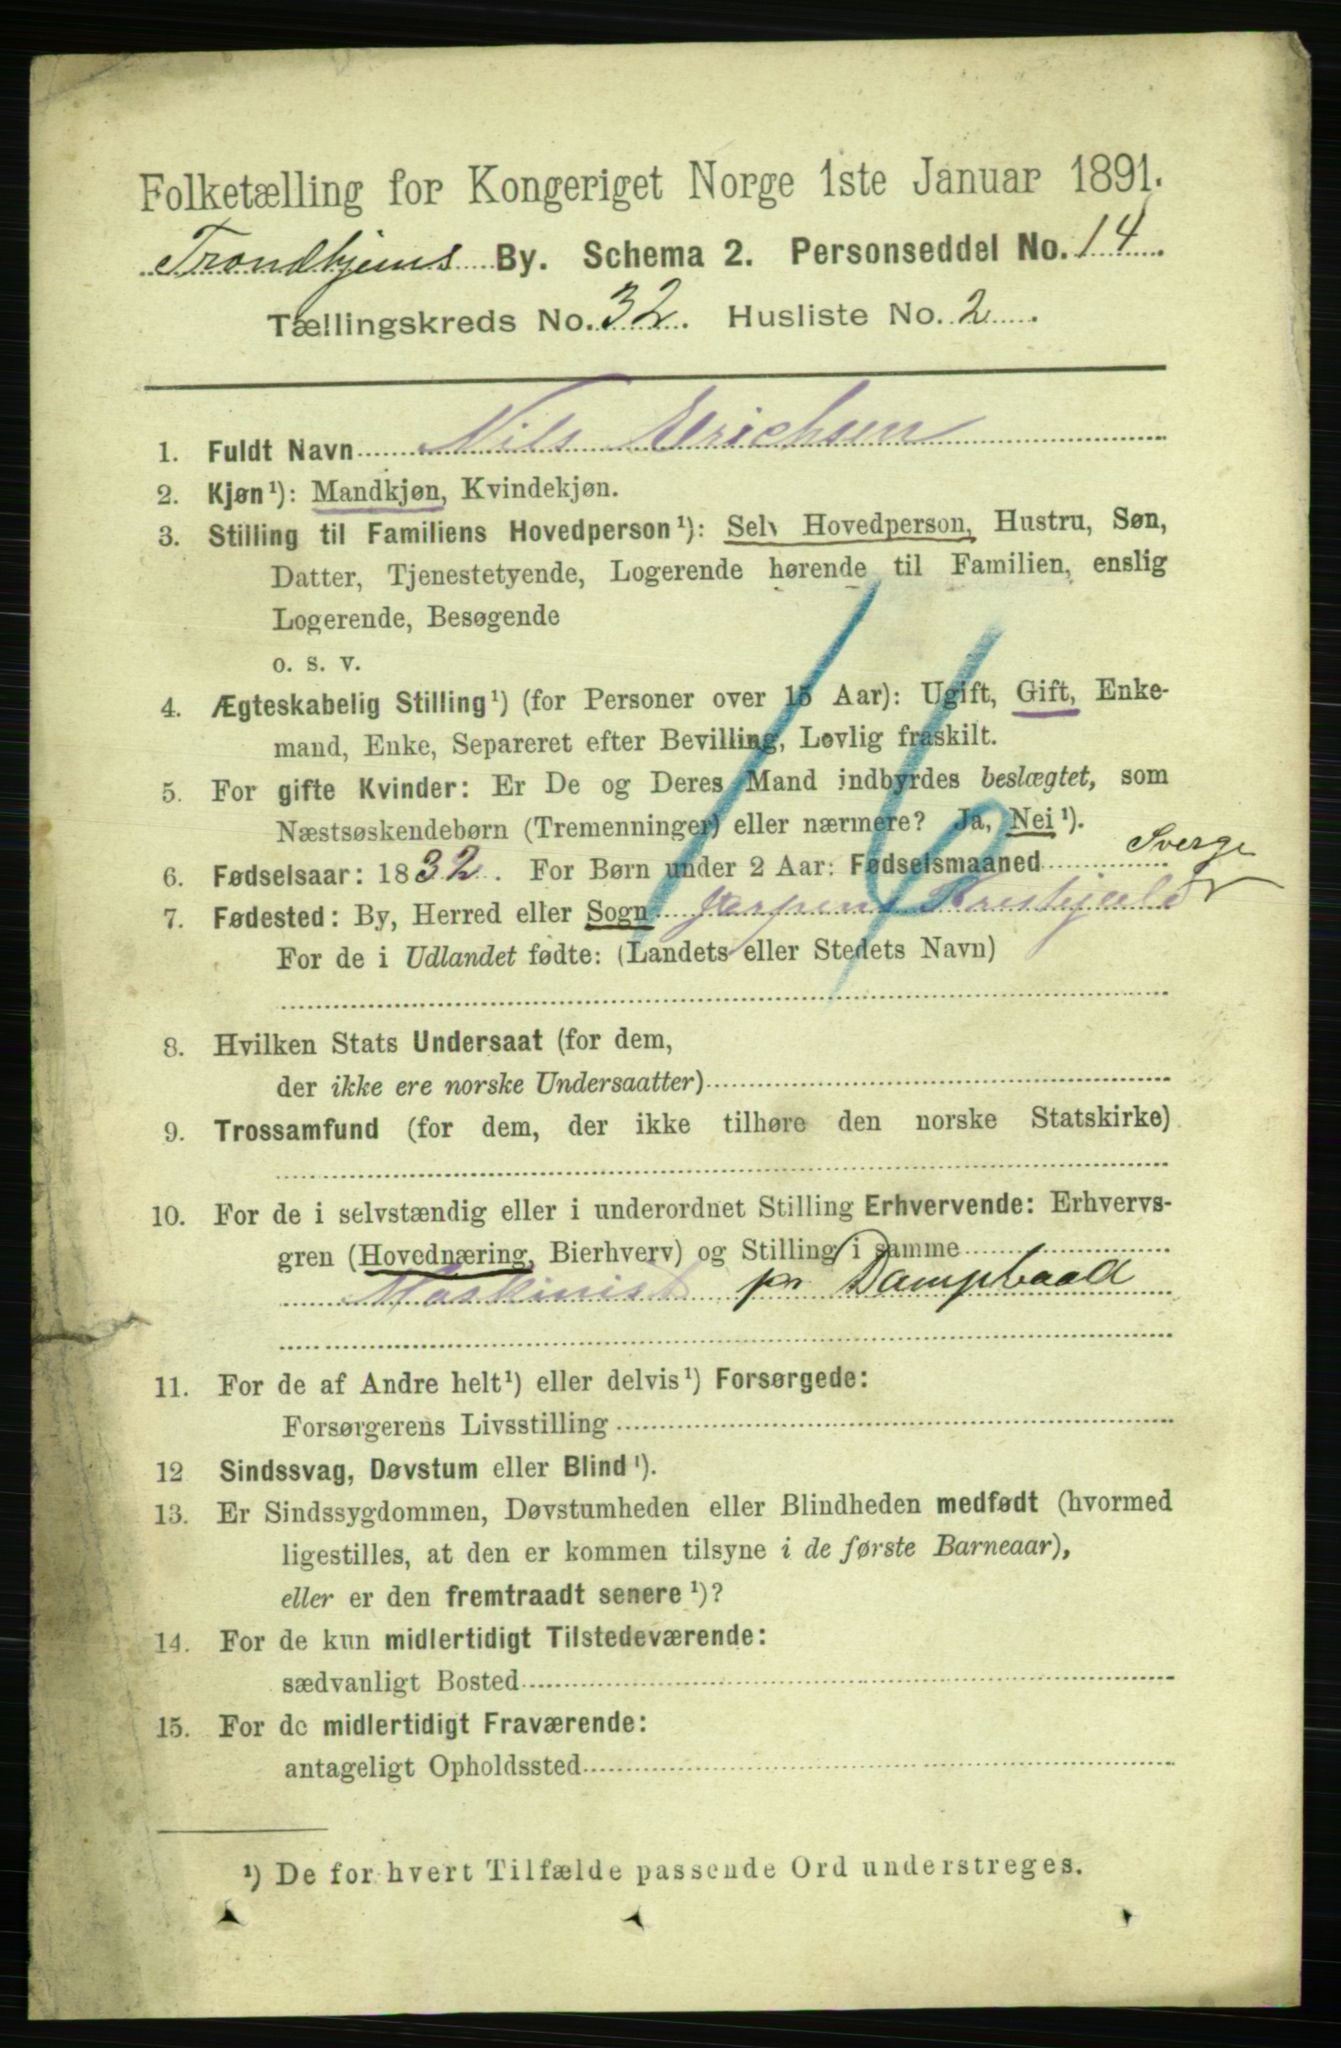 Folketælling for Kongeriget Norge 1ste Januar 1891.
Trondhjems By. Schema 2. Personseddel No. 14.
Tællingskreds No. 32. Husliste No. 2.
1. Fuldt Navn Nils Erichsen
2. Kjøn¹): Mandkjøn, Kvindekjøn.
3. Stilling til Familiens Hovedperson¹): Selv Hovedperson, Hustru, Søn,
Datter, Tjenestetyende, Logerende hørende til Familien, enslig
Logerende, Besøgende
o. s. v.
4. Ægteskabelig Stilling¹) (for Personer over 15 Aar): Ugift, Gift, Enke-
mand, Enke, Separeret efter Bevilling, Lovlig fraskilt.
5. For gifte Kvinder: Er De og Deres Mand indbyrdes beslægtet, som
Næstsøskendebørn (Tremenninger) eller nærmere? Ja, Nei¹).
6. Fødselsaar: 1832. For Børn under 2 Aar: Fødselsmaaned
Sverge
7. Fødested: By, Herred eller Sogn
For de i Udlandet fødte: (Landets eller Stedets Navn)
8. Hvilken Stats Undersaat (for dem,
der ikke ere norske Undersaatter)
9. Trossamfund (for dem, der ikke tilhøre den norske Statskirke)
10. For de i selvstændig eller i underordnet Stilling Erhvervende: Erhvervs-
gren (Hovednæring, Bierhverv) og Stilling i samme
Maskinist pr Dampbaad
11. For de af Andre helt¹) eller delvis¹) Forsørgede:
Forsørgerens Livsstilling
12 Sindssvag, Døvstum eller Blind¹).
13. Er Sindssygdommen, Døvstumheden eller Blindheden medfødt (hvormed
ligestilles, at den er kommen tilsyne i de første Barneaar),
eller er den fremtraadt senere¹)?
14. For de kun midlertidigt Tilstedeværende:
sædvanligt Bosted
15. For de midlertidigt Fraværende:
antageligt Opholdssted
¹) De for hvert Tilfælde passende Ord understreges.